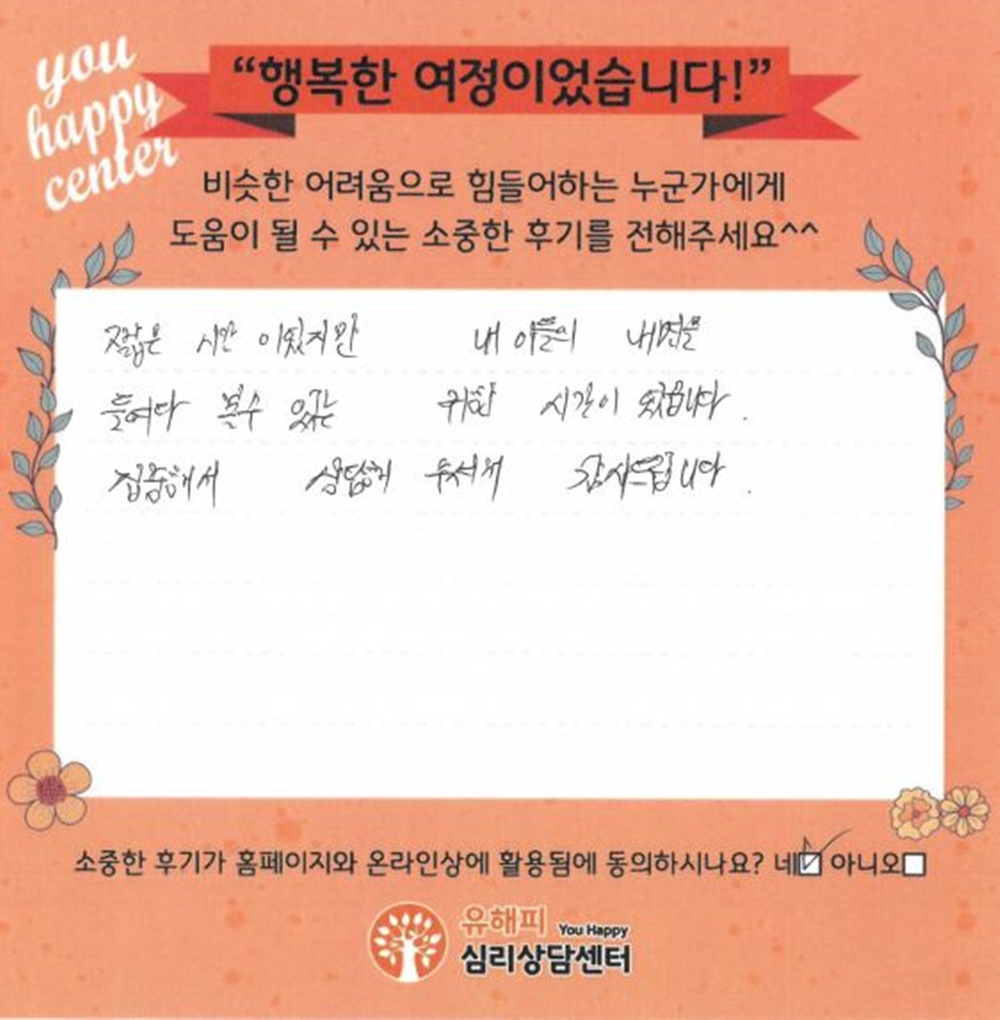 you
happy
center
“행복한 여정이었습니다!”
비슷한 어려움으로 힘들어하는 누군가에게
도움이 될 수 있는 소중한 후기를 전해주세요^^
짧은 시간 이었지만 내 아들의 내면을
들여다 볼수 있는 귀한 시간이 였습니다.
집중해서 상담해 주셔서 감사드립니다.
소중한 후기가 홈페이지와 온라인상에 활용됨에 동의하시나요? 네 아니오
유해피 You Happy
심리상담센터